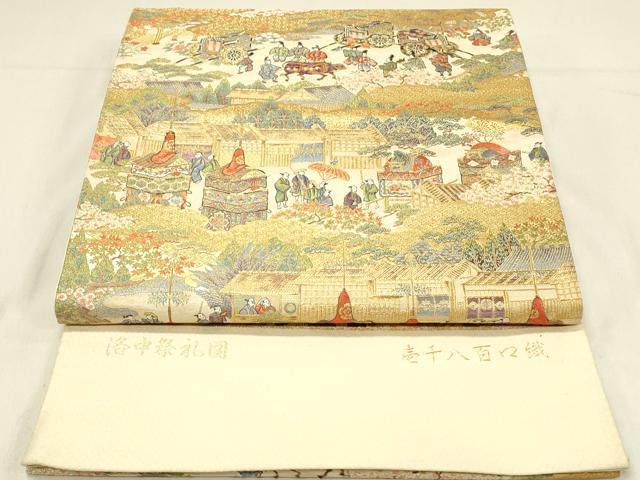 洛中祭礼図
壱千八百口織